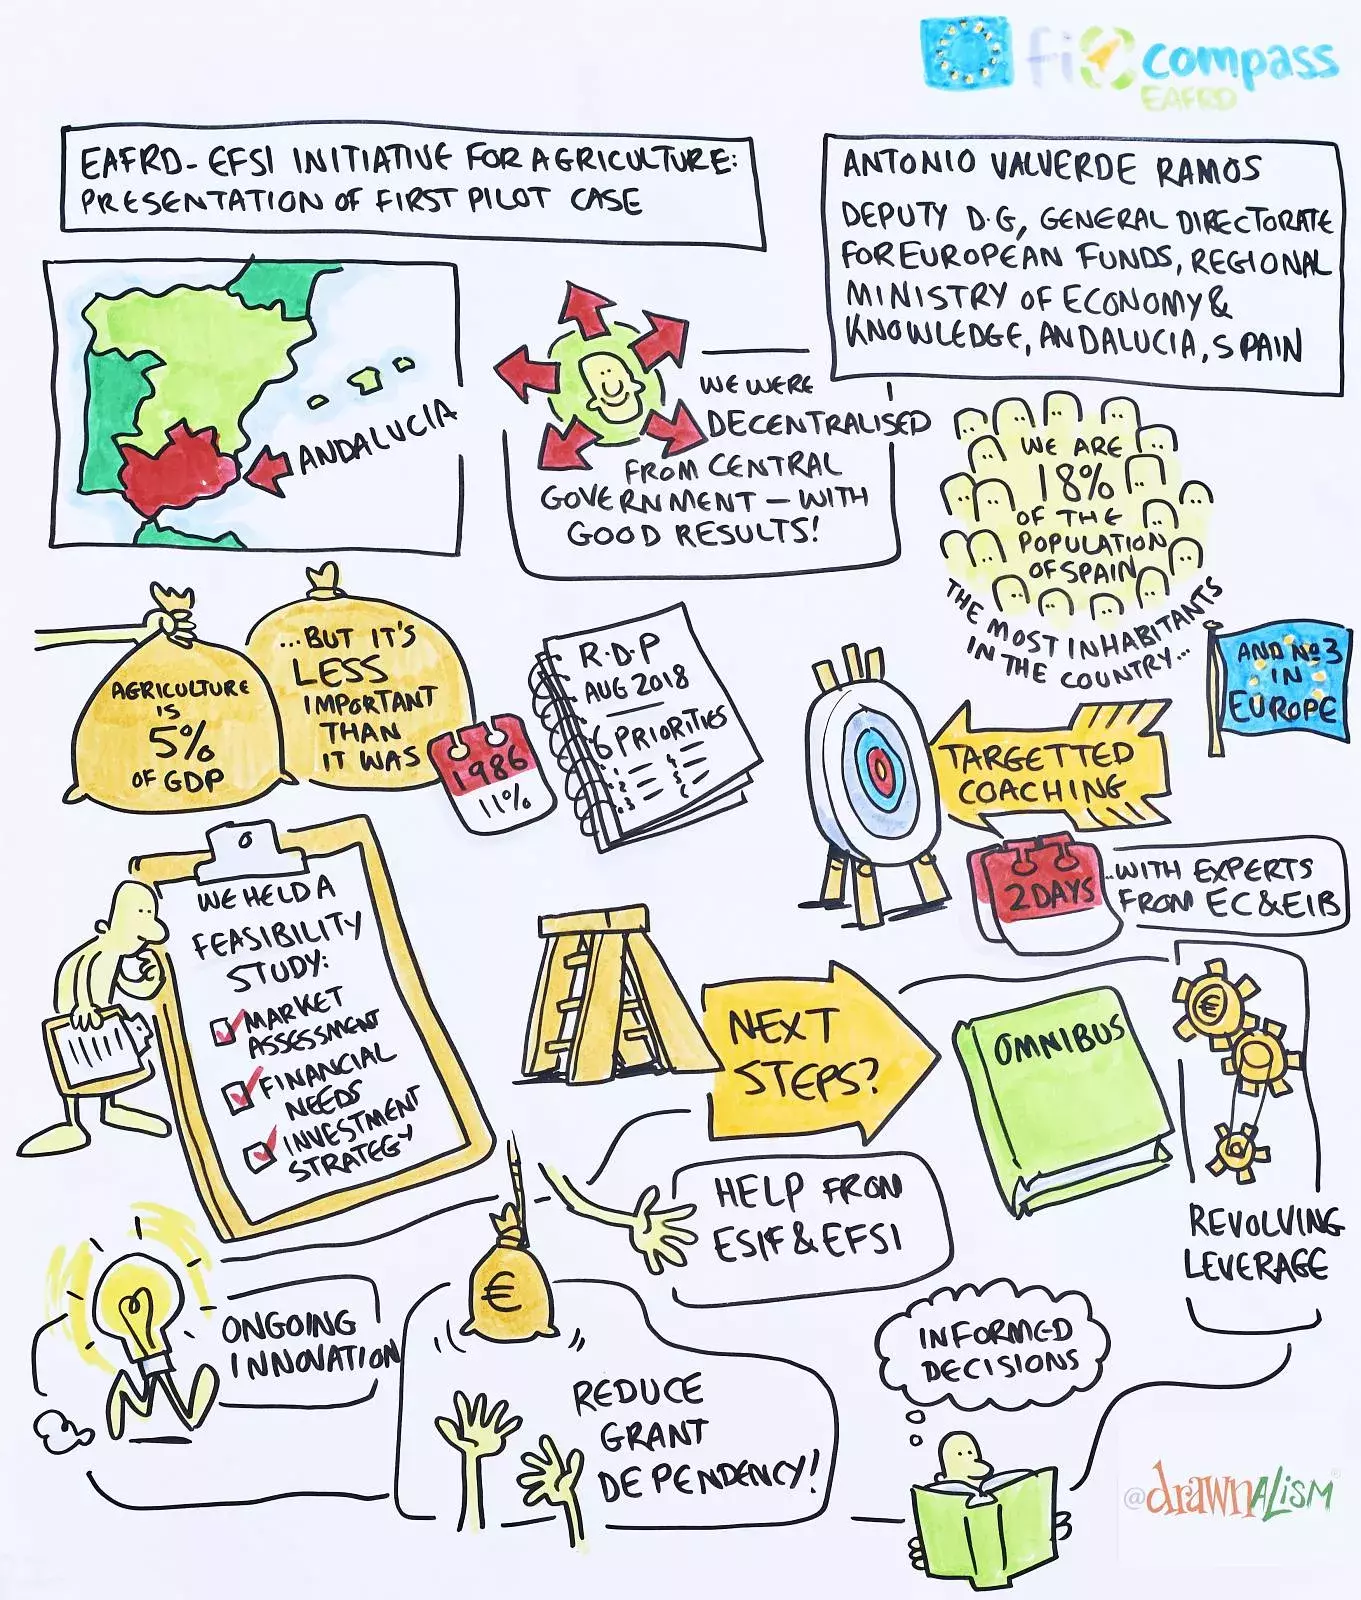 fi compass
EAFRD
EAFRD-EFSI INITIATIVE FOR AGRICULTURE:
PRESENTATION OF FIRST PILOT CASE
ANTONIO VALVERDE RAMOS
DEPUTY D.G, GENERAL DIRECTORATE
FOR EUROPEAN FUNDS, REGIONAL
MINISTRY OF ECONOMY &
KNOWLEDGE, ANDALUCIA, SPAIN
ANDALUCIA
WE WERE
DECENTRALISED
FROM CENTRAL
GOVERNMENT - WITH
GOOD RESULTS!
WE ARE
18%
OF THE
POPULATION
OF SPAIN
THE MOST INHABITANTS
IN THE COUNTRY...
AND No 3
IN
EUROPE
AGRICULTURE
IS
5%
OF GDP
...BUT IT'S
LESS
IMPORTANT
THAN
IT WAS
1986
11%
R.D.P
AUG 2018
6 PRIORITIES
1
2
3
4
5
6
TARGETTED
COACHING
2 DAYS
...WITH EXPERTS
FROM EC & EIB
WE HELD A
FEASIBILITY
STUDY:
MARKET
ASSESSMENT
FINANCIAL
NEEDS
INVESTMENT
STRATEGY
NEXT
STEPS?
OMNIBUS
€
REVOLVING
LEVERAGE
HELP FROM
ESIF & EFSI
ONGOING
INNOVATION
€
REDUCE
GRANT
DEPENDENCY!
INFORMED
DECISIONS
@drawnalism®